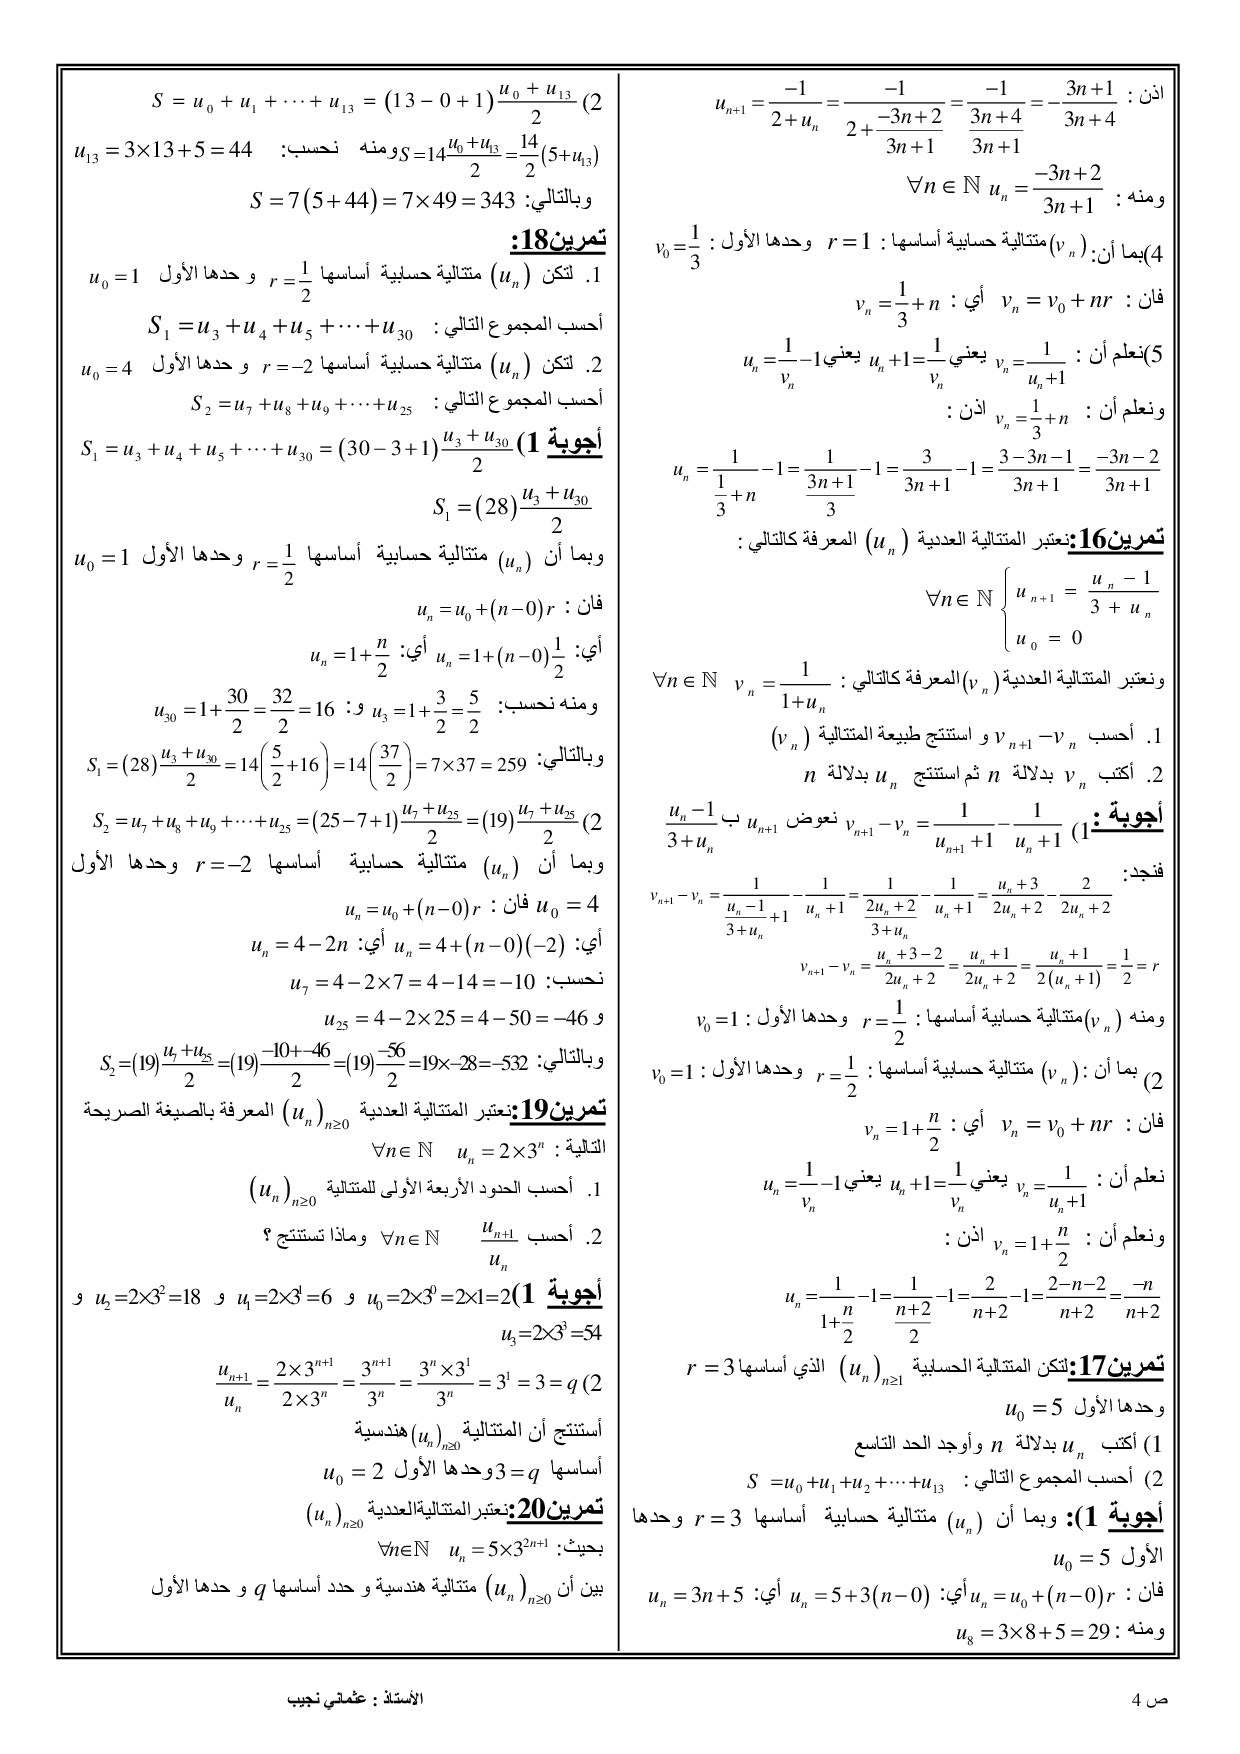 اذن : u_{n+1} = \frac{-1}{2+u_n} = \frac{-1}{2+\frac{-3n+2}{3n+1}} = \frac{-1}{\frac{3n+4}{3n+1}} = -\frac{3n+1}{3n+4}
ومنه : u_n = \frac{-3n+2}{3n+1} ∀n∈ℕ
4)بما أن: (v_n) متتالية حسابية أساسها : r = 1 وحدها الأول : v_0 = \frac{1}{3}
فان : v_n = v_0 + nr أي : v_n = \frac{1}{3} + n
5)نعلم أن : v_n = \frac{1}{u_n+1} يعني u_n + 1 = \frac{1}{v_n} يعني u_n = \frac{1}{v_n} - 1
ونعلم أن : v_n = \frac{1}{3} + n اذن :
u_n = \frac{1}{\frac{1}{3}+n} - 1 = \frac{1}{\frac{3n+1}{3}} - 1 = \frac{3}{3n+1} - 1 = \frac{3-3n-1}{3n+1} = \frac{-3n-2}{3n+1}
تمرين16:نعتبر المتتالية العددية (u_n) المعرفة كالتالي :
∀n∈ℕ { u_{n+1} = \frac{u_n - 1}{3 + u_n}
u_0 = 0
ونعتبر المتتالية العددية (v_n) المعرفة كالتالي : v_n = \frac{1}{1+u_n} ∀n∈ℕ
1. أحسب v_{n+1} - v_n و استنتج طبيعة المتتالية (v_n)
2. أكتب v_n بدلالة n ثم استنتج u_n بدلالة n
أجوبة : 1) v_{n+1} - v_n = \frac{1}{u_{n+1}+1} - \frac{1}{u_n+1} نعوض u_{n+1} ب \frac{u_n-1}{3+u_n}
فنجد: v_{n+1} - v_n = \frac{1}{\frac{u_n-1}{3+u_n}+1} - \frac{1}{u_n+1} = \frac{1}{\frac{2u_n+2}{3+u_n}} - \frac{1}{u_n+1} = \frac{u_n+3}{2u_n+2} - \frac{2}{2u_n+2}
v_{n+1} - v_n = \frac{u_n+3-2}{2u_n+2} = \frac{u_n+1}{2u_n+2} = \frac{u_n+1}{2(u_n+1)} = \frac{1}{2} = r
ومنه (v_n) متتالية حسابية أساسها : r = \frac{1}{2} وحدها الأول : v_0 = 1
2) بما أن : (v_n) متتالية حسابية أساسها : r = \frac{1}{2} وحدها الأول : v_0 = 1
فان : v_n = v_0 + nr أي : v_n = 1 + \frac{n}{2}
نعلم أن : v_n = \frac{1}{u_n+1} يعني u_n + 1 = \frac{1}{v_n} يعني u_n = \frac{1}{v_n} - 1
ونعلم أن : v_n = 1 + \frac{n}{2} اذن :
u_n = \frac{1}{1+\frac{n}{2}} - 1 = \frac{1}{\frac{n+2}{2}} - 1 = \frac{2}{n+2} - 1 = \frac{2-n-2}{n+2} = \frac{-n}{n+2}
تمرين17:لتكن المتتالية الحسابية (u_n)_{n≥1} الذي أساسها r = 3
وحدها الأول u_0 = 5
1) أكتب u_n بدلالة n وأوجد الحد التاسع
2) أحسب المجموع التالي : S = u_0 + u_1 + u_2 + ⋯ + u_{13}
أجوبة 1): وبما أن (u_n) متتالية حسابية أساسها r = 3 وحدها
الأول u_0 = 5
فان : u_n = u_0 + (n-0)r أي: u_n = 5 + 3(n-0) أي: u_n = 3n + 5
ومنه : u_8 = 3×8 + 5 = 29
2) S = u_0 + u_1 + ⋯ + u_{13} = (13 - 0 + 1)\frac{u_0 + u_{13}}{2}
S = 14\frac{u_0+u_{13}}{2} = \frac{14}{2}(5+u_{13}) ومنه نحسب: u_{13} = 3×13 + 5 = 44
وبالتالي: S = 7(5 + 44) = 7×49 = 343
تمرين18:
1. لتكن (u_n) متتالية حسابية أساسها r = \frac{1}{2} و حدها الأول u_0 = 1
أحسب المجموع التالي : S_1 = u_3 + u_4 + u_5 + ⋯ + u_{30}
2. لتكن (u_n) متتالية حسابية أساسها r = -2 و حدها الأول u_0 = 4
أحسب المجموع التالي : S_2 = u_7 + u_8 + u_9 + ⋯ + u_{25}
أجوبة 1) S_1 = u_3 + u_4 + u_5 + ⋯ + u_{30} = (30 - 3 + 1)\frac{u_3 + u_{30}}{2}
S_1 = (28)\frac{u_3 + u_{30}}{2}
وبما أن (u_n) متتالية حسابية أساسها r = \frac{1}{2} وحدها الأول u_0 = 1
فان : u_n = u_0 + (n-0)r
أي: u_n = 1 + (n-0)\frac{1}{2} أي: u_n = 1 + \frac{n}{2}
ومنه نحسب: u_3 = 1 + \frac{3}{2} = \frac{5}{2} و: u_{30} = 1 + \frac{30}{2} = \frac{32}{2} = 16
وبالتالي: S_1 = (28)\frac{u_3+u_{30}}{2} = 14(\frac{5}{2}+16) = 14(\frac{37}{2}) = 7×37 = 259
2) S_2 = u_7 + u_8 + u_9 + ⋯ + u_{25} = (25-7+1)\frac{u_7+u_{25}}{2} = (19)\frac{u_7+u_{25}}{2}
وبما أن (u_n) متتالية حسابية أساسها r = -2 وحدها الأول
u_0 = 4 فان : u_n = u_0 + (n-0)r
أي: u_n = 4 + (n-0)(-2) أي: u_n = 4 - 2n
نحسب: u_7 = 4 - 2×7 = 4 - 14 = -10
و u_{25} = 4 - 2×25 = 4 - 50 = -46
وبالتالي: S_2 = (19)\frac{u_7+u_{25}}{2} = (19)\frac{-10+-46}{2} = (19)\frac{-56}{2} = 19×-28 = -532
تمرين19:نعتبر المتتالية العددية (u_n)_{n≥0} المعرفة بالصيغة الصريحة
التالية : u_n = 2×3^n ∀n∈ℕ
1. أحسب الحدود الأربعة الأولى للمتتالية (u_n)_{n≥0}
2. أحسب \frac{u_{n+1}}{u_n} ∀n∈ℕ وماذا تستنتج ؟
أجوبة 1) u_0 = 2×3^0 = 2×1 = 2 و u_1 = 2×3^1 = 6 و u_2 = 2×3^2 = 18 و
u_3 = 2×3^3 = 54
2) \frac{u_{n+1}}{u_n} = \frac{2×3^{n+1}}{2×3^n} = \frac{3^{n+1}}{3^n} = \frac{3^n×3^1}{3^n} = 3^1 = 3 = q
أستنتج أن المتتالية (u_n)_{n≥0} هندسية
أساسها q = 3 وحدها الأول u_0 = 2
تمرين20:نعتبرالمتتاليةالعددية (u_n)_{n≥0}
بحيث: u_n = 5×3^{2n+1} ∀n∈ℕ
بين أن (u_n)_{n≥0} متتالية هندسية و حدد أساسها q و حدها الأول
ص 4
الأستاذ : عثماني نجيب